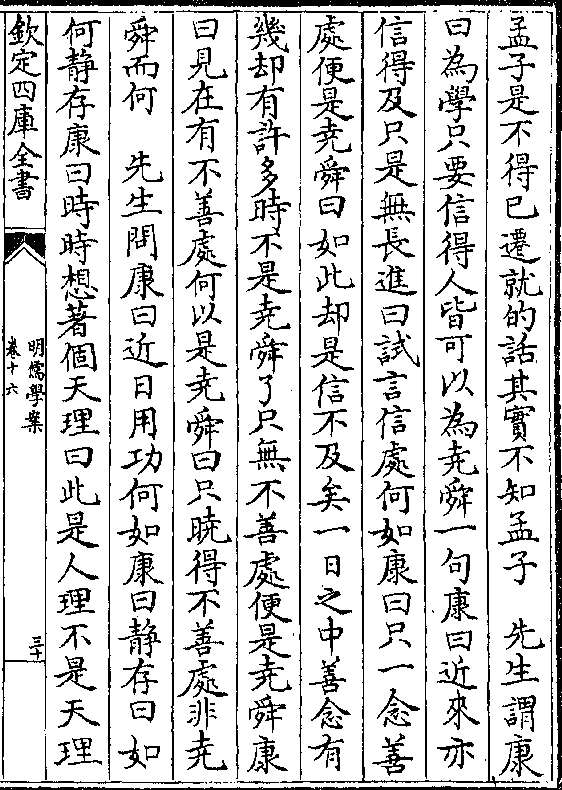 孟子是不得已遷就的話其實不知孟子　先生謂康
曰為學只要信得人皆可以為堯舜一句康曰近來亦
信得及只是無長進曰試言信處何如康曰只一念善
處便是堯舜曰如此却是信不及矣一日之中善念有
幾却有許多時不是堯舜了只無不善處便是堯舜康
曰見在有不善處何以是堯舜曰只曉得不善處非堯
舜而何　先生問康曰近日用功何如康曰靜存曰如
何靜存康曰時時想著個天理曰此是人理不是天理
欽定四庫全書
明儒學案
卷十六
三十